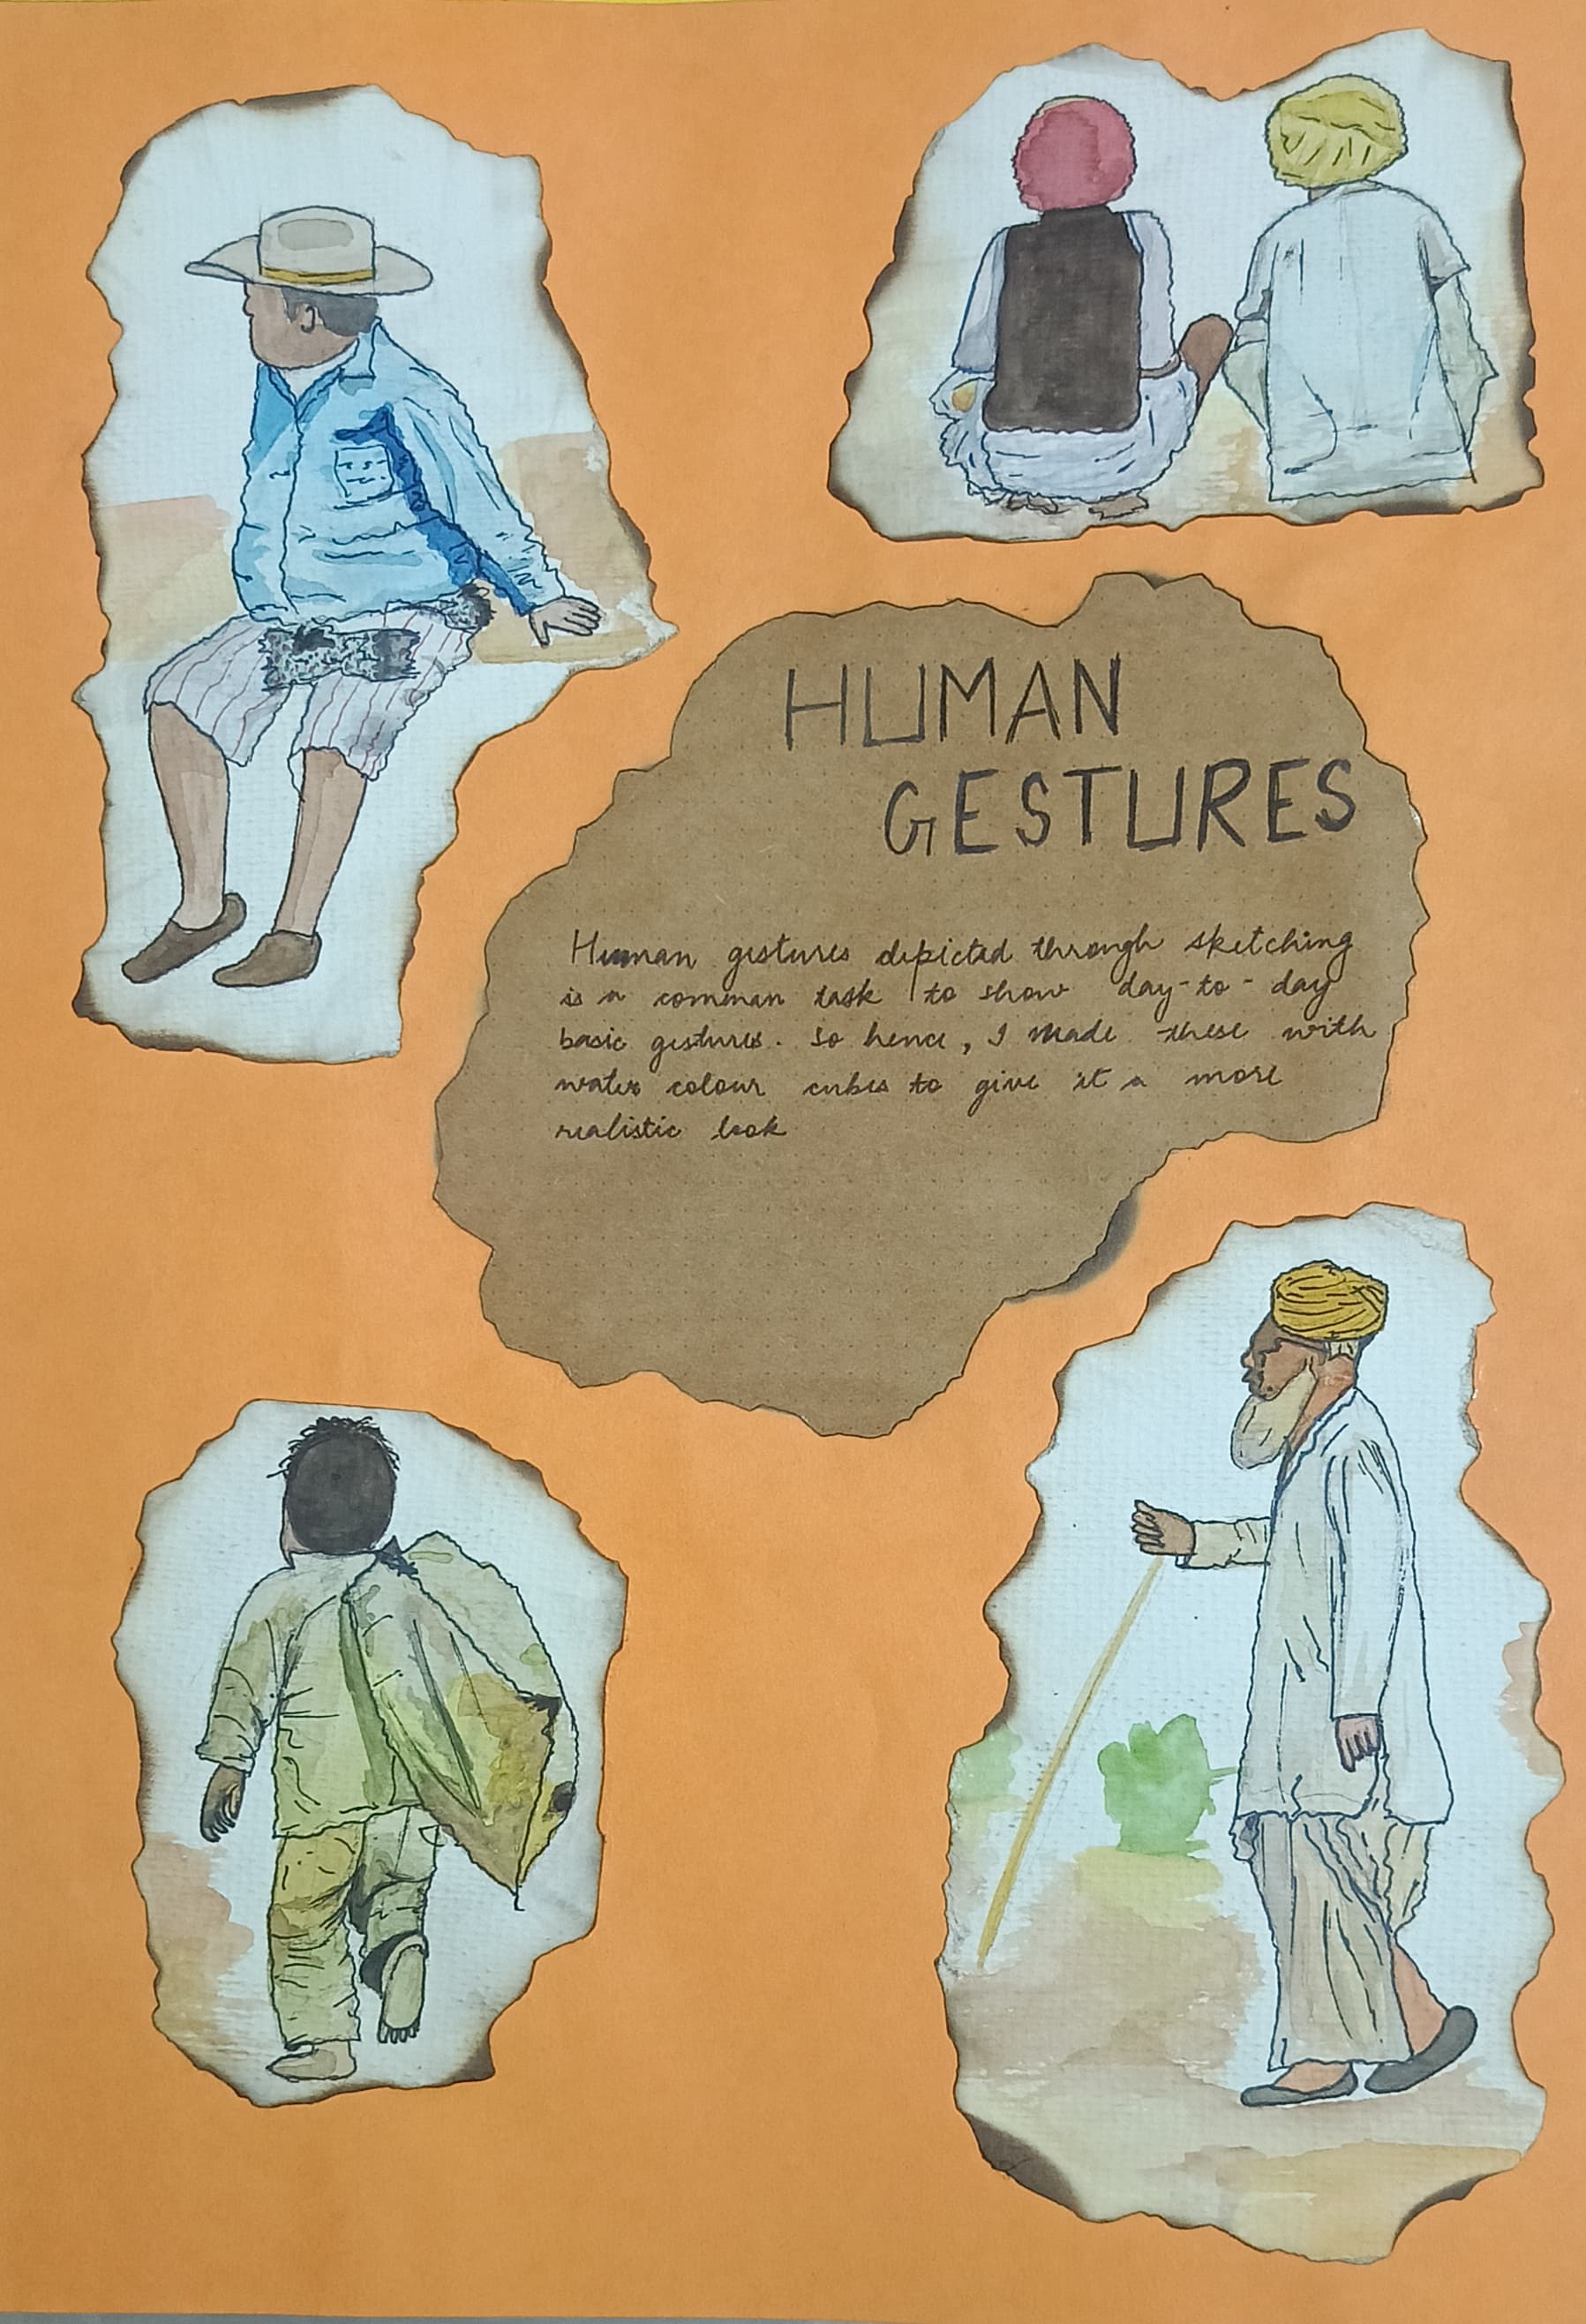 HUMAN
GESTURES
Human gestures depicted through sketching
is a common task to show day-to-day
basic gestures. So hence, I made these with
water colour cubes to give it a more
realistic look